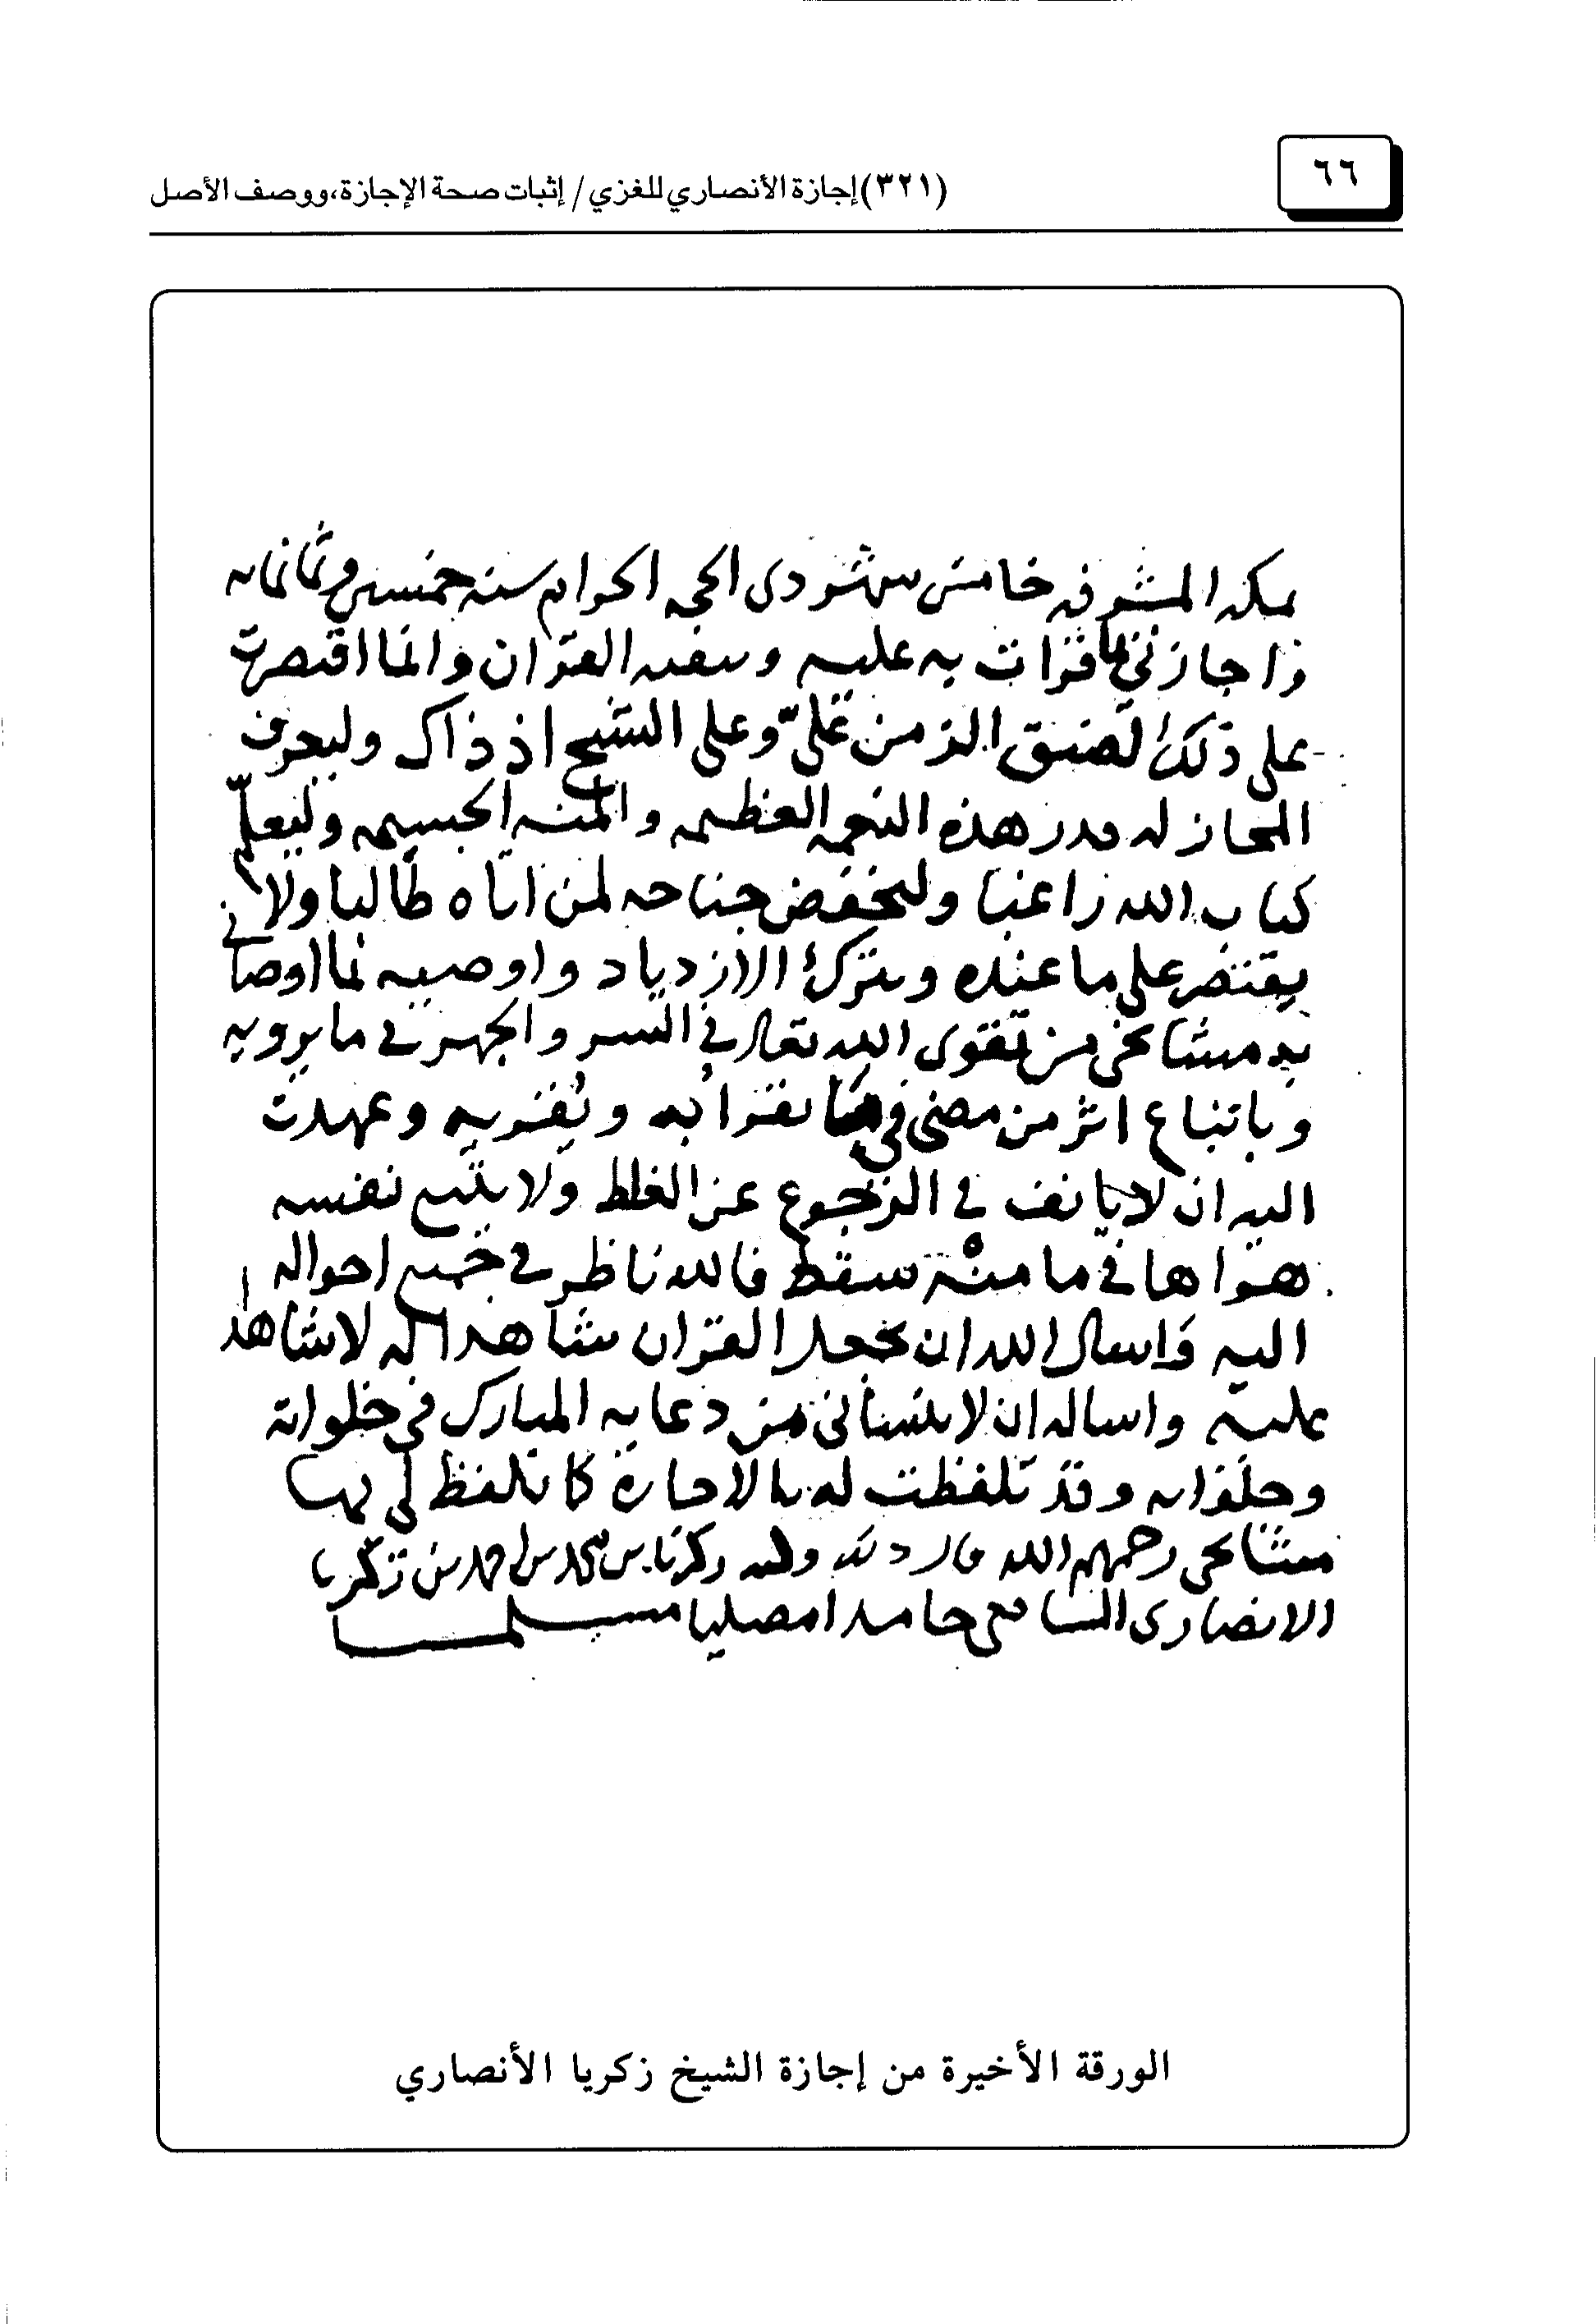 ٦٦
(٣٢١) إجازة الأنصاري للغزي / إثبات صحة الإجازة، ووصف الأصل
بمكه المشرفه خامس شهر ذى الحجه الحرام سنه خمسين وثمانمايه
واجازني بما قرات به عليه وببقيه القران وانما اقتصرت
على ذلك لضيق الزمن عليّ وعلى الشيخ اذ ذاك وليعرف
المجاز له قدر هذه النعمه العظيمه والمنه الجسيمه وليعلّم
كتاب الله راغبا وليخفض جناحه لمن اتاه طالبا ولا
يقتصر على ما عنده ويترك الازدياد واوصيه بما اوصاني
به مشايخي من تقوى الله تعالى في السر والجهر في ما يرويه
وباتباع اثر من مضى في ما يقرا به ويقريه وعهدت
اليه ان لا يانف في الرجوع عن الغلط ولا يتبع نفسه
هواها في ما منه سقط فالله ناظر في جميع احواله
اليه واسال الله ان يجعل القران شاهدا له لا شاهدا
عليه واساله ان لا ينساني من دعايه المبارك في خلواته
وجلواته وقد تلفظت له بالاجازة كما تلفظ لي بها
مشايخى رحمهم الله قال ذلك وكتبه زكريا بن محمد بن احمد بن زكريا
الانصارى الشافعى حامدا مصليا مسلما
الورقة الأخيرة من إجازة الشيخ زكريا الأنصاري